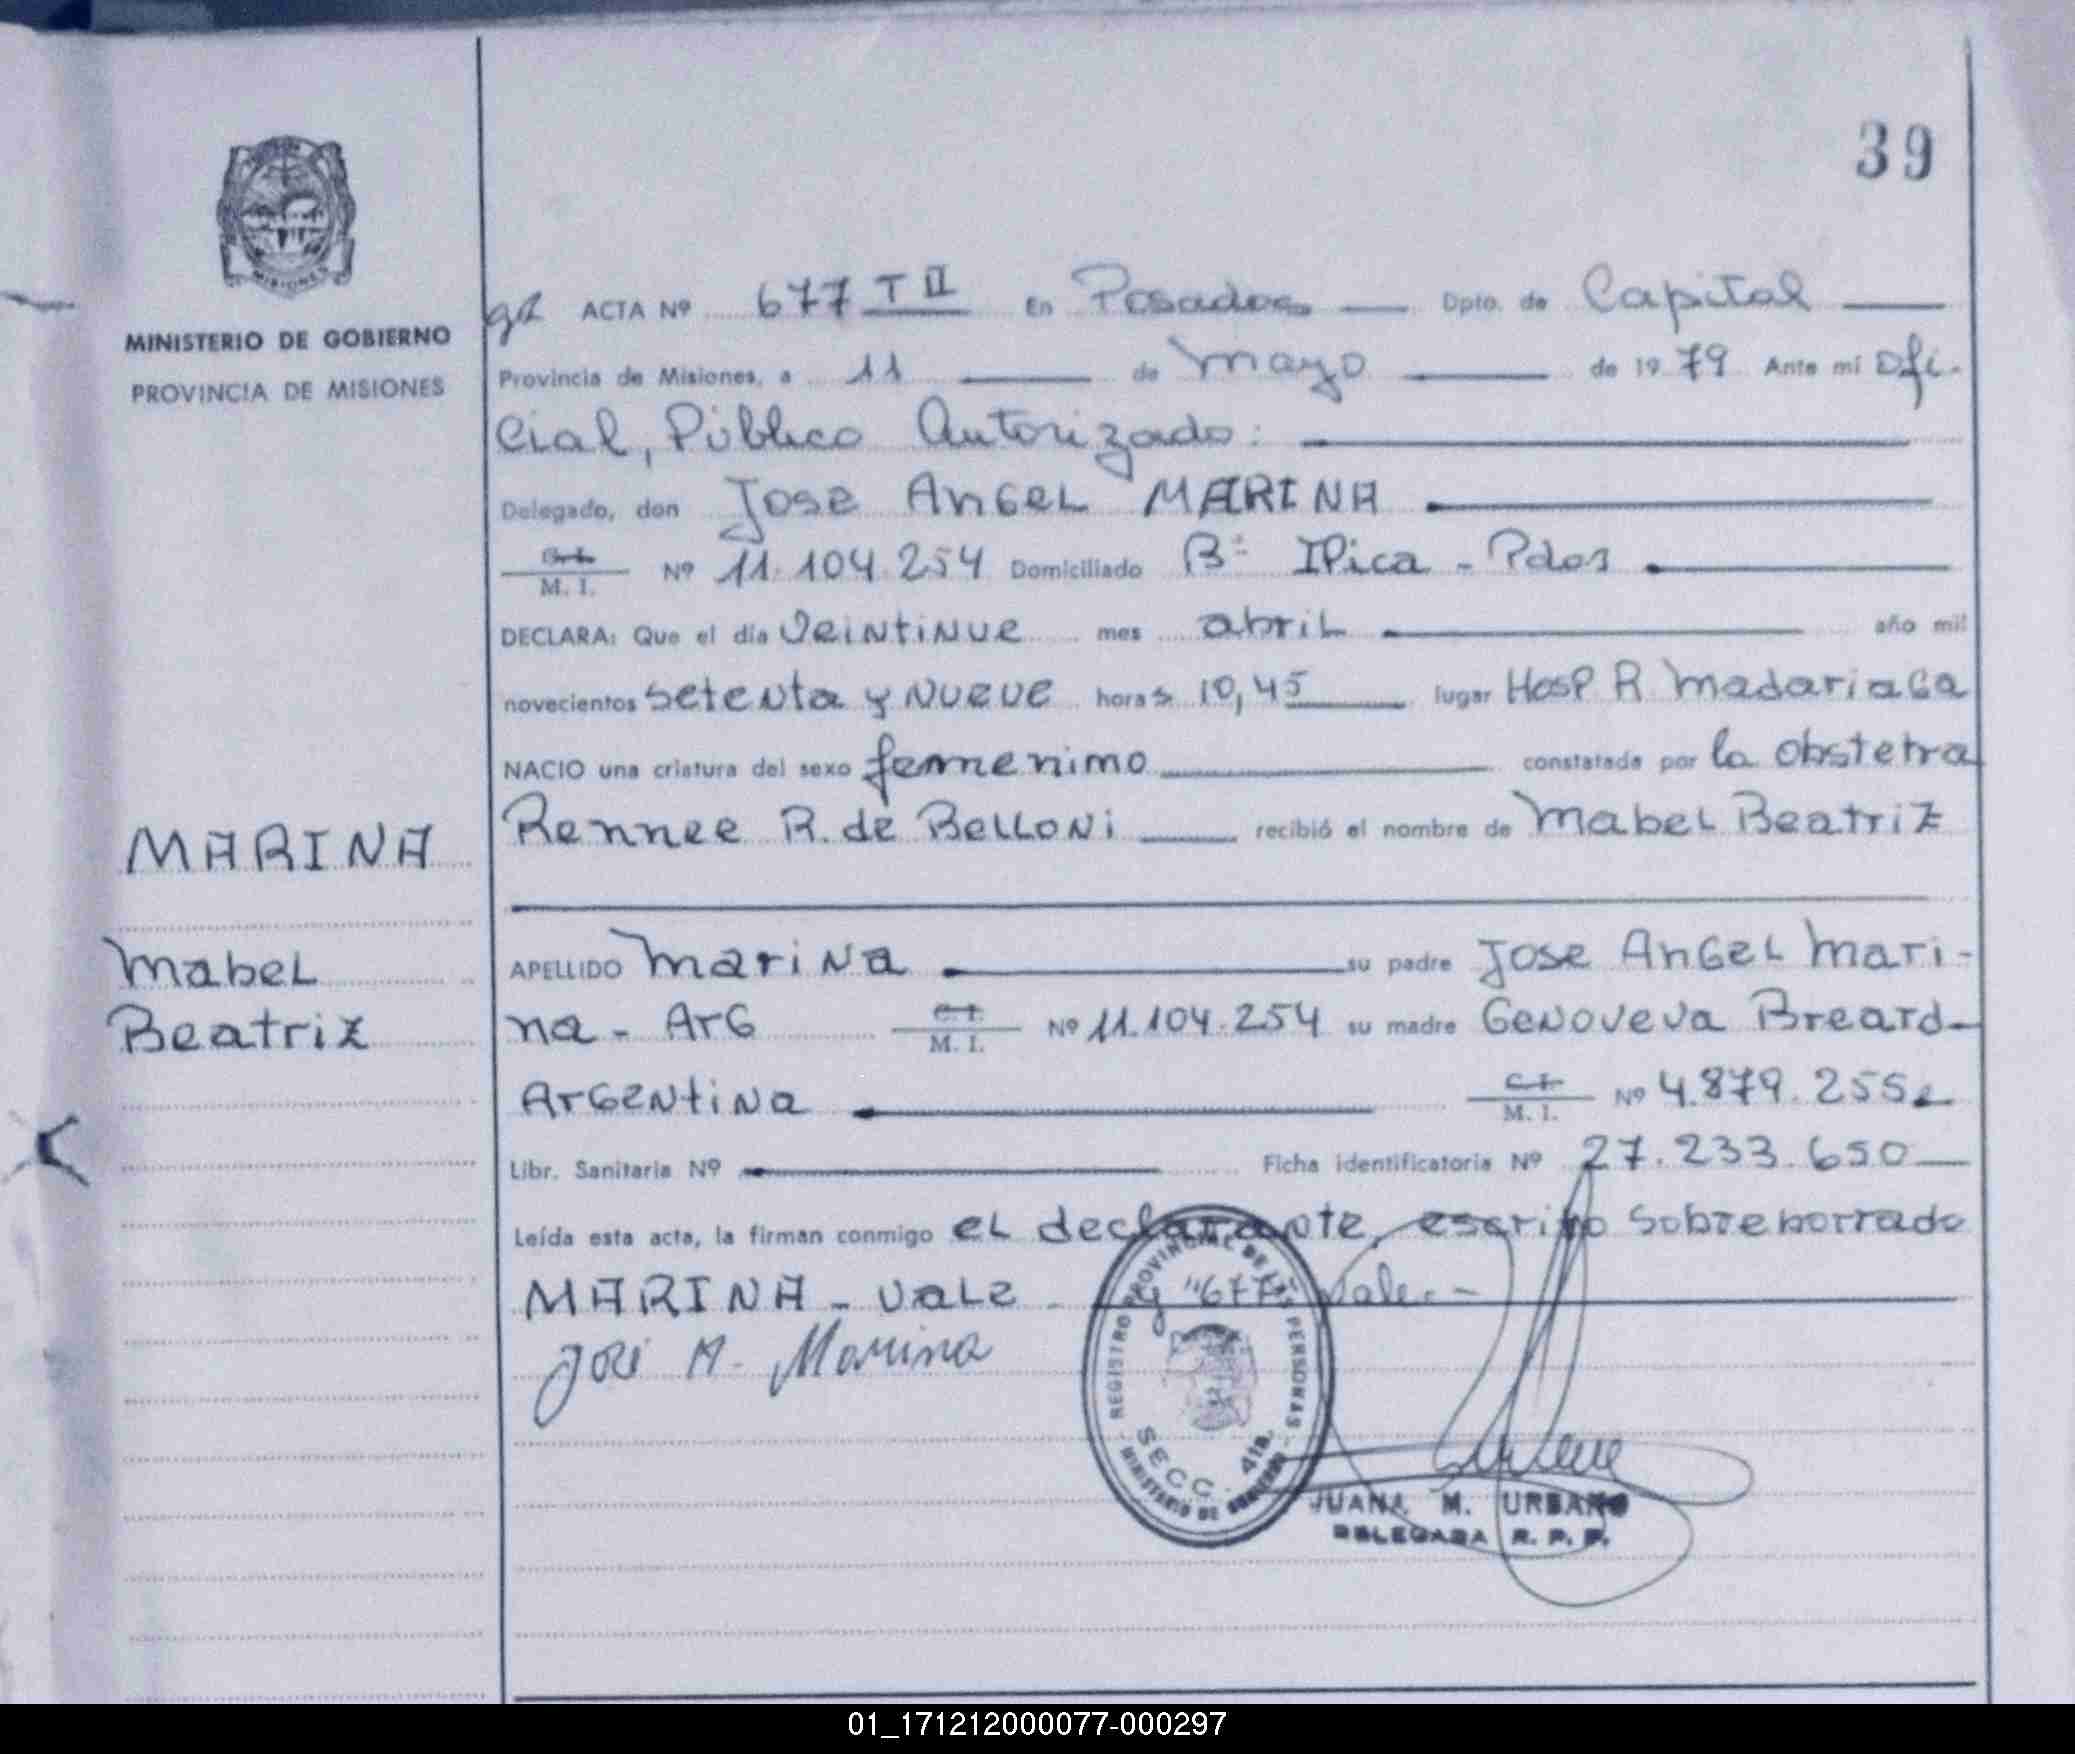 39
MINISTERIO DE GOBIERNO
PROVINCIA DE MISIONES
MISIONES
ACTA Nº 677 T II En Posadas Dpto. de Capital
Provincia de Misiones, a 11 de Mayo de 1979 Ante mí Ofi-
cial, Público Autorizado:
Delegado, don Jose Angel MARINA
C.I. M. I. Nº 11.104.254 Domiciliado Bº Ipica - Pdas
DECLARA: Que el día Veintinue mes abril año mil
novecientos setenta y nueve horas 10,45 lugar Hosp R. Madariaga
NACIO una criatura del sexo femenimo constatada por la obstetra
Rennee R. de Belloni recibió el nombre de Mabel Beatriz
MARINA
Mabel
Beatriz
APELLIDO Marina su padre Jose Angel Mari-
na - Arg C.I. M. I. Nº 11.104.254 su madre Genoveva Breard-
Argentina C.I. M. I. Nº 4.879.255
Libr. Sanitaria Nº Ficha identificatoria Nº 27.233.650
Leída esta acta, la firman conmigo el declarante, escrito sobreborrado
MARINA - vale - y "677" Vale.-
José A. Marina
REGISTRO PROVINCIAL DE LAS PERSONAS
SECC. 4ta.
MINISTERIO DE GOBIERNO
JUANA M. URBANO
DELEGADA R. P. P.
01_171212000077-000297